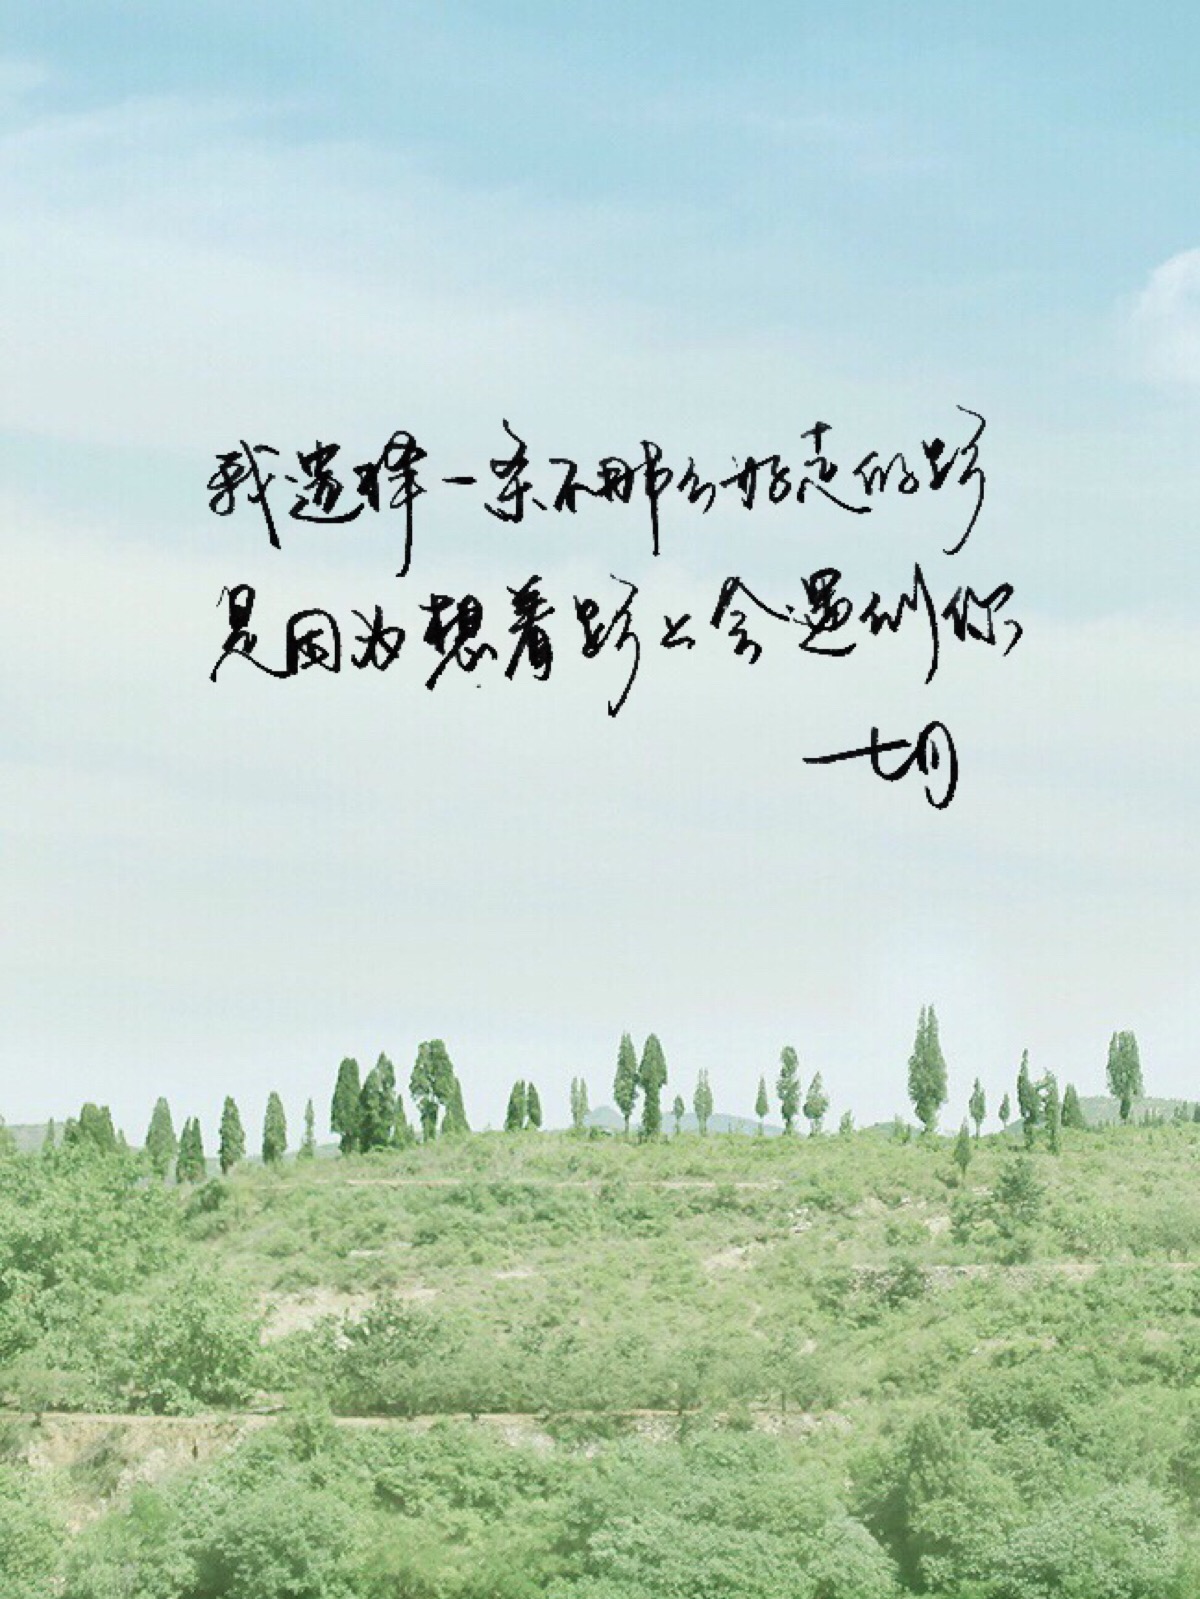 我选择一条不那么好走的路
是因为想着路上会遇到你
一七月